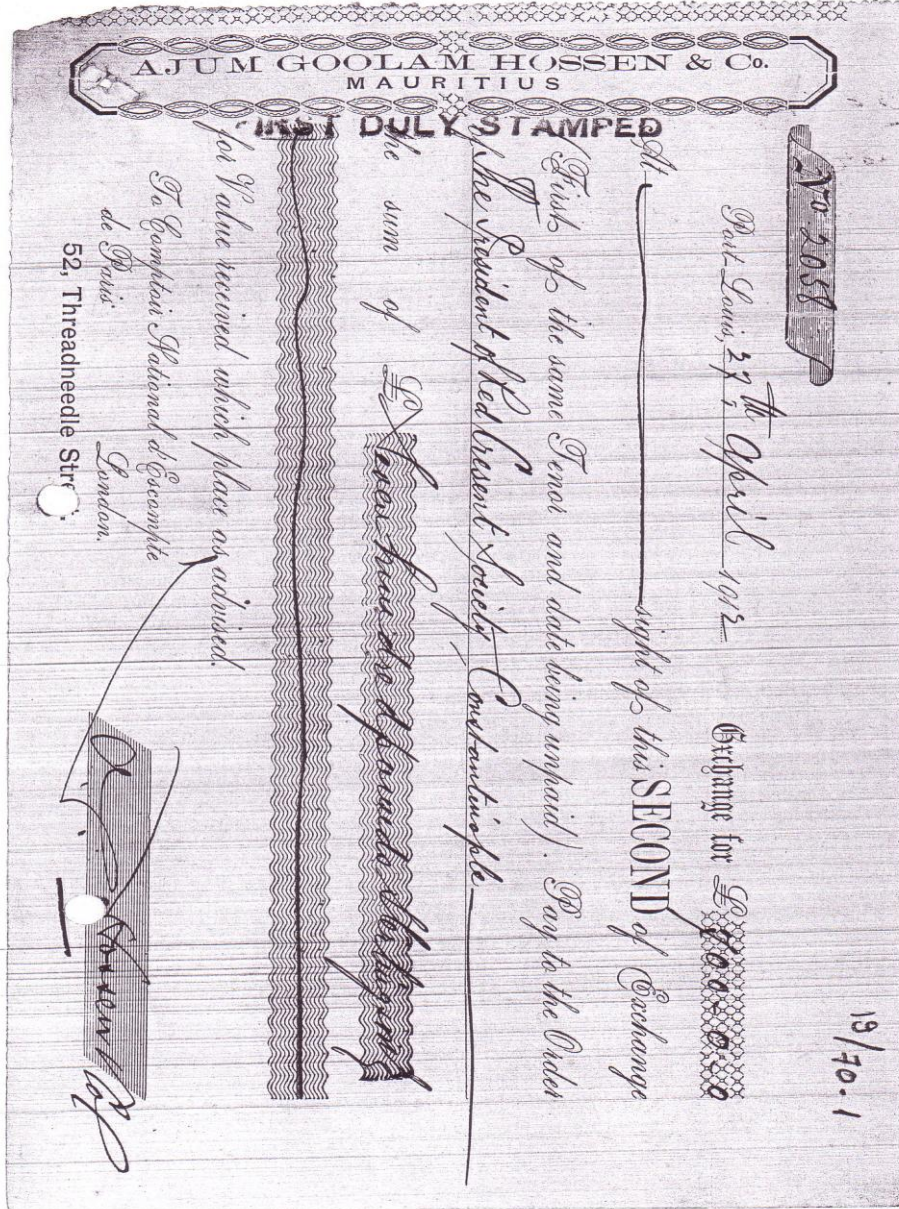 AJUM GOOLAM HOSSEN & Co.
MAURITIUS
FIRST DULY STAMPED
19/70.1
No 2058
Port Louis, 27th April 1912
Exchange for £ 700-0-0
At sight of this SECOND of Exchange
(First of the same Tenor and date being unpaid). Pay to the Order
of The President of Red Cresent Society Constantinople
the sum of £ Seven hundred pounds Sterling only
for Value received which place as advised.
To Comptoir National d'Escompte
de Paris
London.
52, Threadneedle Stre
Hossen & Co